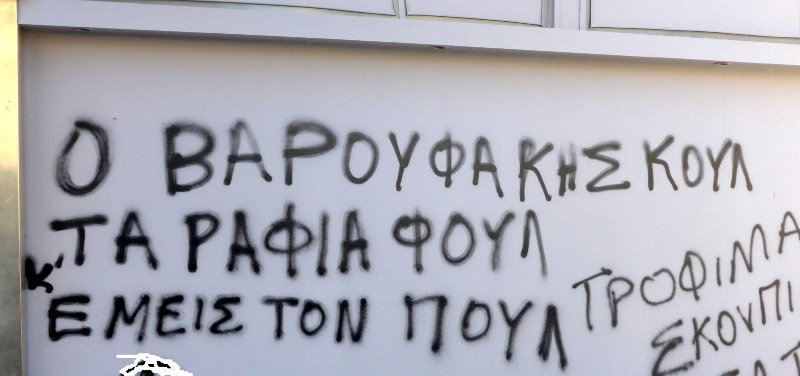 Ο ΒΑΡΟΥΦΑΚΗΣ ΚΟΥΛ
ΤΑ ΡΑΦΙΑ ΦΟΥΛ
Κ' ΕΜΕΙΣ ΤΟΝ ΠΟΥΛ
ΤΡΟΦΙΜΑ
ΣΚΟΥΠΙ